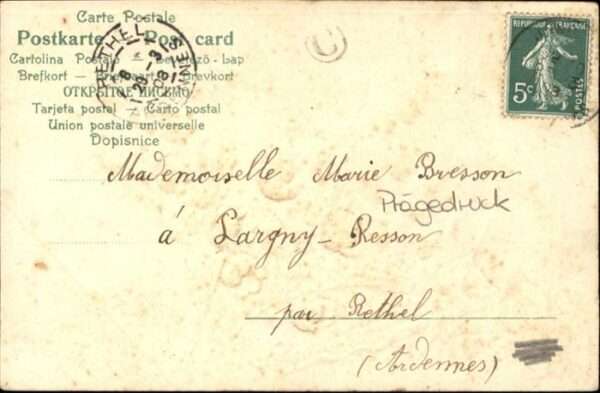 Carte Postale
Postkarte - Post card
Cartolina Postale - Levelező-lap
Brefkort - Briefkaart - Brevkort
ОТКРЫТОЕ ПИСЬМО
Tarjeta postal - Carto postal
Union postale universelle
Dopisnice
RETHEL
ARDENNES
C
RÉPUBLIQUE FRANÇAISE
5c
POSTES
Mademoiselle Marie Bresson
Prägedruck
à Largny-Resson
par Rethel
(Ardennes)